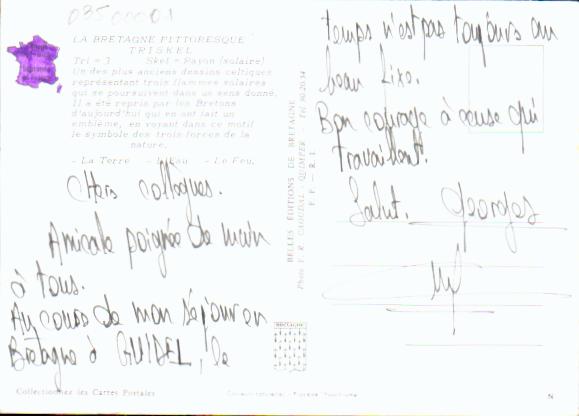 03500001
LA BRETAGNE PITTORESQUE
TRISKEL
Tri = 3 Skel = Rayon (solaire)
Un des plus anciens dessins celtiques
représentant trois flammes solaires
qui se poursuivent dans un sens donné.
Il a été repris par les Bretons
d'aujourd'hui qui en ont fait un
emblème, en voyant dans ce motif
le symbole des trois forces de la
nature.
- La Terre - L'Eau - Le Feu.
Chers collègues.
Amicale poignée de main
à tous.
Au cours de mon séjour en
Bretagne à GUIDEL, le
temps n'est pas toujours au
beau fixe.
Bon courage à ceux qui
travaillent.
Salut. Georges
BELLES ÉDITIONS DE BRETAGNE
Photo F. R. GAOUDAL - QUIMPER - Tél. 90.20.34
F. F. - R. I.
BRETAGNE
Collectionnez les Cartes Postales
N